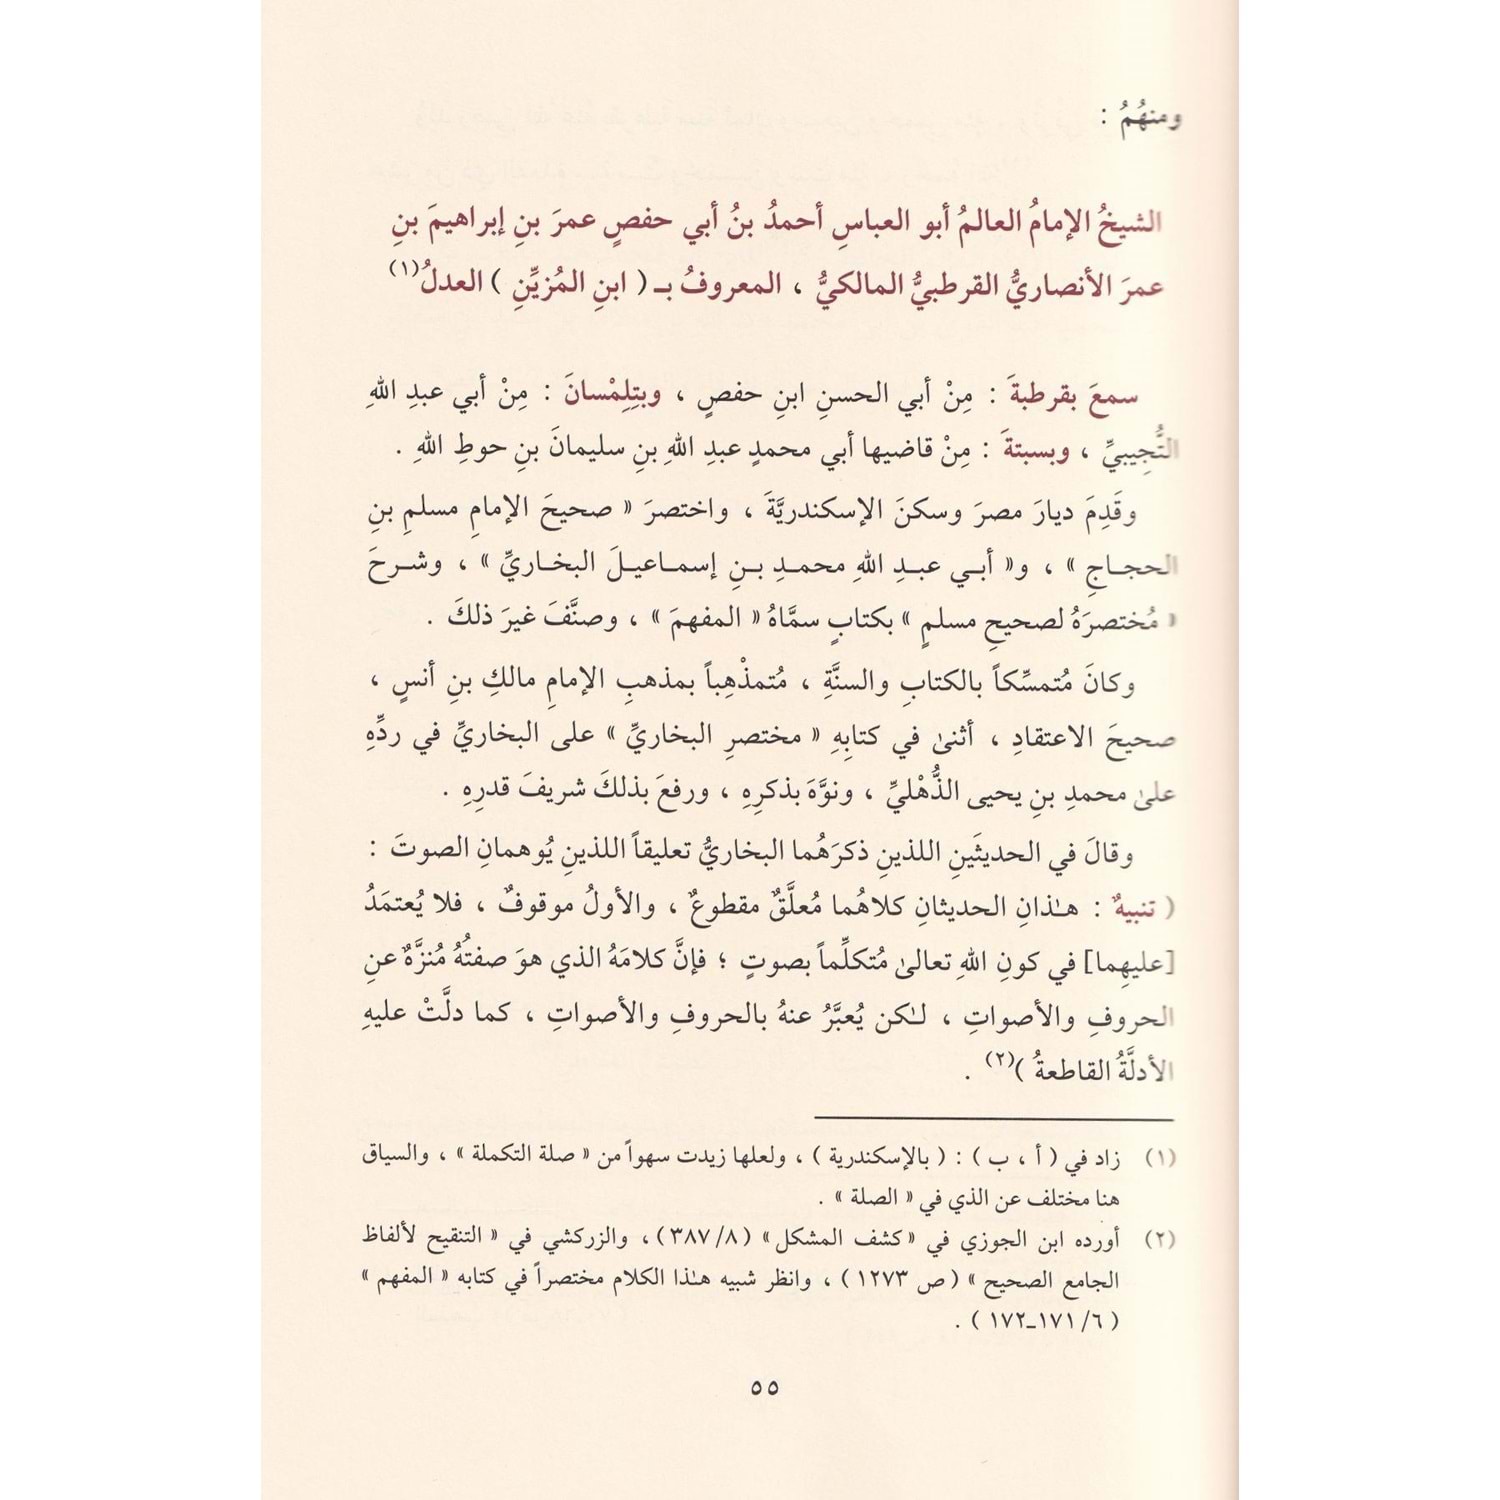 ومنهُمُ :
الشيخُ الإمامُ العالمُ أبو العباسِ أحمدُ بنُ أبي حفصٍ عمرَ بنِ إبراهيمَ بنِ
عمرَ الأنصاريُّ القرطبيُّ المالكيُّ ، المعروفُ بـ ( ابنِ المُزيِّنِ ) العدلُ(١)
سمعَ بقرطبةَ : مِنْ أبي الحسنِ ابنِ حفصٍ ، وبتِلِمْسانَ : مِنْ أبي عبدِ اللهِ
التُّجِيبيِّ ، وبسبتةَ : مِنْ قاضيها أبي محمدٍ عبدِ اللهِ بنِ سليمانَ بنِ حوطِ اللهِ .
وقَدِمَ ديارَ مصرَ وسكنَ الإسكندريَّةَ ، واختصرَ « صحيحَ الإمامِ مسلمِ بنِ
الحجـاجِ » ، و« أبـي عبـدِ اللهِ محمـدِ بـنِ إسمـاعيـلَ البخـاريِّ » ، وشـرحَ
« مُختصرَهُ لصحيحِ مسلمٍ » بكتابٍ سمَّاهُ « المفهمَ » ، وصنَّفَ غيرَ ذلكَ .
وكانَ مُتمسِّكاً بالكتابِ والسنَّةِ ، مُتمذْهِباً بمذهبِ الإمامِ مالكِ بنِ أنسٍ ،
صحيحَ الاعتقادِ ، أثنىٰ في كتابِهِ « مختصرِ البخاريِّ » على البخاريِّ في ردِّهِ
علىٰ محمدِ بنِ يحيى الذُّهْليِّ ، ونوَّهَ بذكرِهِ ، ورفعَ بذلكَ شريفَ قدرِهِ .
وقالَ في الحديثَينِ اللذينِ ذكرَهُما البخاريُّ تعليقاً اللذينِ يُوهمانِ الصوتَ :
( تنبيهٌ : هـٰذانِ الحديثانِ كلاهُما مُعلَّقٌ مقطوعٌ ، والأولُ موقوفٌ ، فلا يُعتمَدُ
[عليهِما] في كونِ اللهِ تعالىٰ مُتكلِّماً بصوتٍ ؛ فإنَّ كلامَهُ الذي هوَ صفتُهُ مُنزَّهٌ عنِ
الحروفِ والأصواتِ ، لـٰكن يُعبَّرُ عنهُ بالحروفِ والأصواتِ ، كما دلَّتْ عليهِ
الأدلَّةُ القاطعةُ )(٢) .
(١) زاد في ( أ ، ب ) : ( بالإسكندرية ) ، ولعلها زيدت سهواً من « صلة التكملة » ، والسياق
هنا مختلف عن الذي في « الصلة » .
(٢) أورده ابن الجوزي في « كشف المشكل » ( ٨/ ٣٨٧ ) ، والزركشي في « التنقيح لألفاظ
الجامع الصحيح » ( ص ١٢٧٣ ) ، وانظر شبيه هـٰذا الكلام مختصراً في كتابه « المفهم »
( ٦/ ١٧١ـ١٧٢ ) .
٥٥